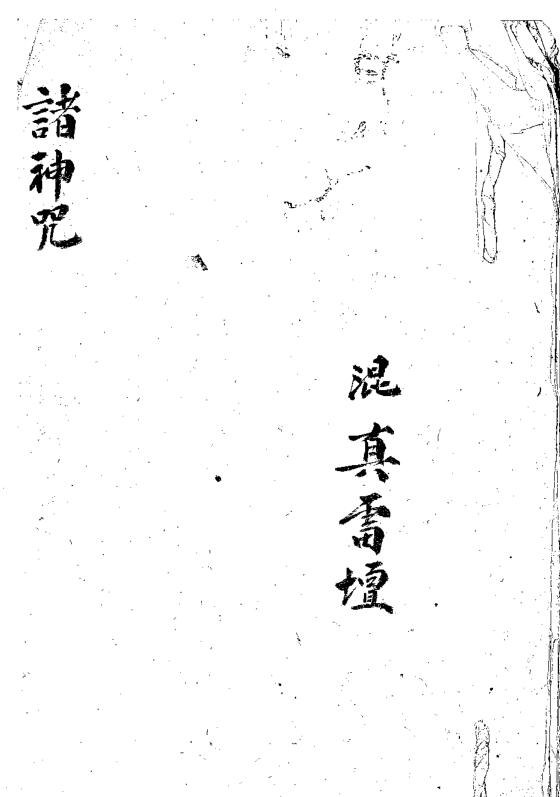 混真雷壇
諸神咒